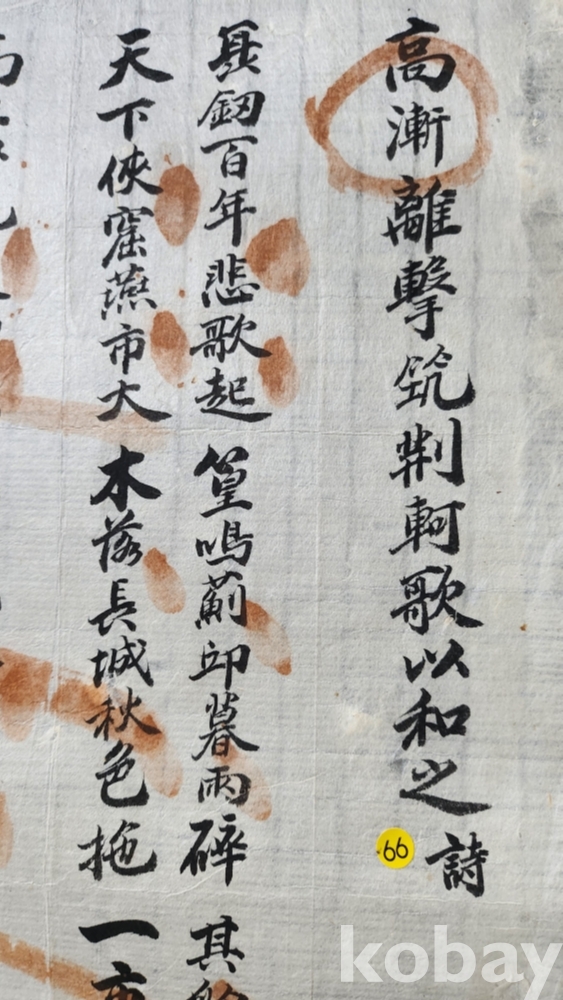 高漸離擊筑荊軻歌以和之
詩
釰百年悲歌起 篁鳴薊邱暮雨碎 其
天下俠窟燕市大 木落長城秋色拖 一
66
kobay